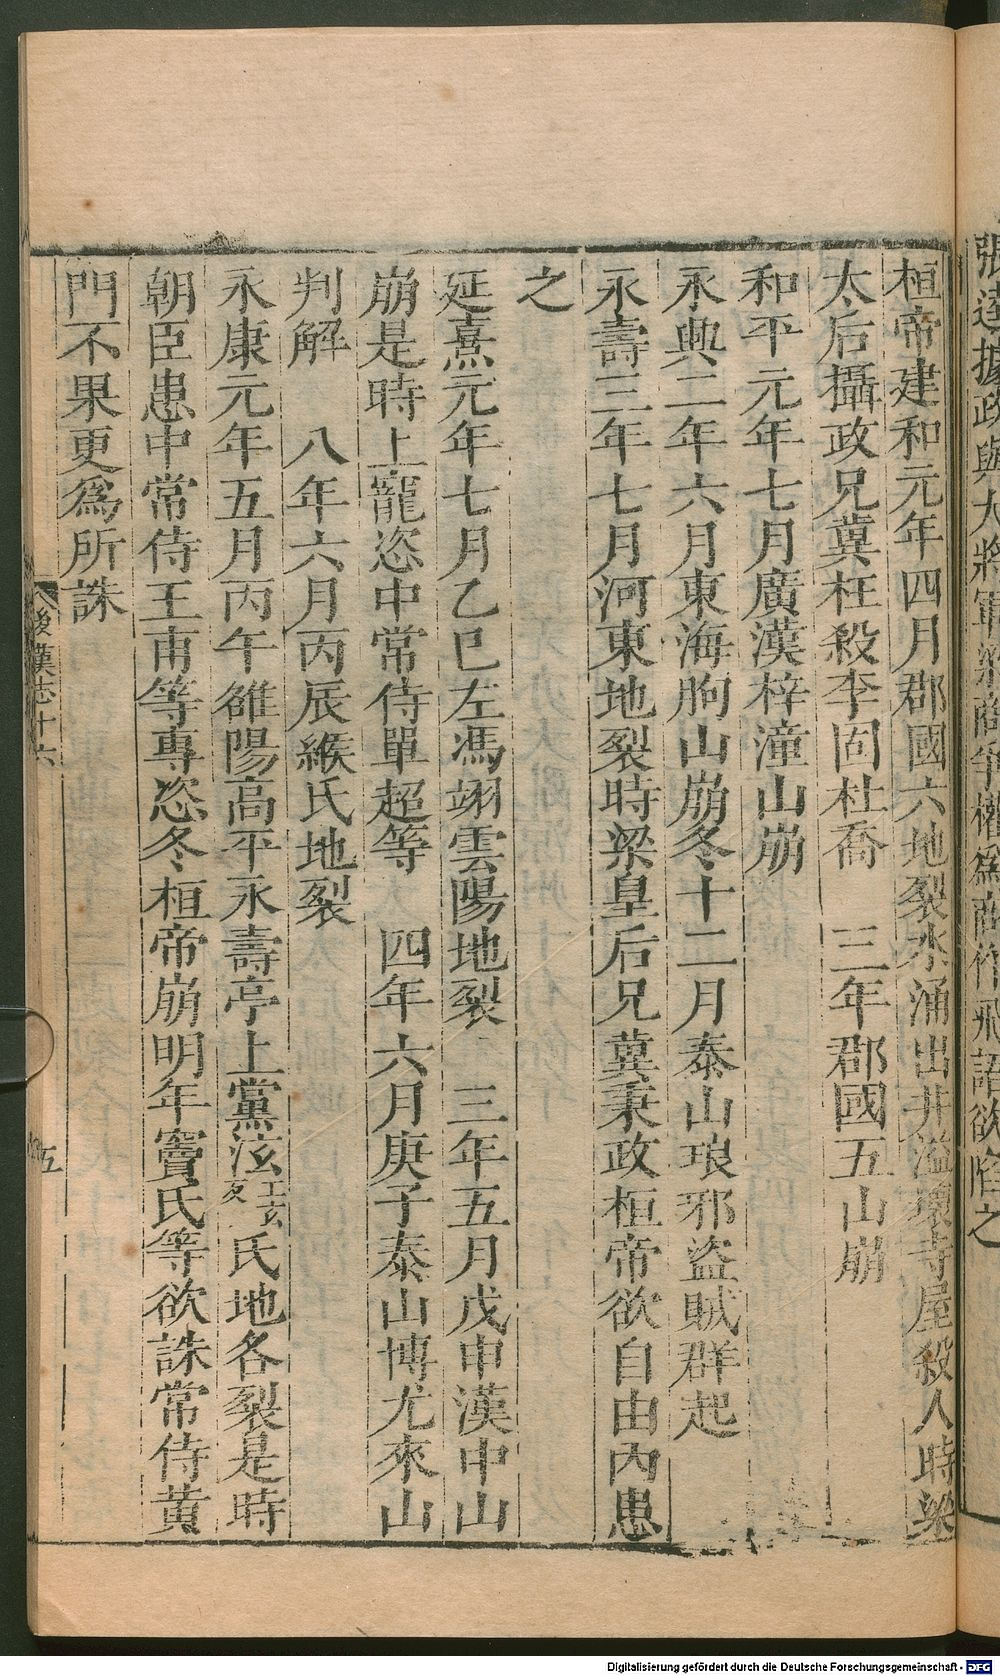 張逵據政與大將軍梁商爭權爲商作飛語欲陷之
桓帝建和元年四月郡國六地裂水涌出井溢壞寺屋殺人時梁
太后攝政兄冀枉殺李固杜喬　三年郡國五山崩
和平元年七月廣漢梓潼山崩
永興二年六月東海朐山崩冬十二月泰山琅邪盜賊群起
永壽三年七月河東地裂時梁皇后兄冀秉政桓帝欲自由內患
之
延熹元年七月乙巳左馮翊雲陽地裂　三年五月戊申漢中山
崩是時上寵恣中常侍單超等　四年六月庚子泰山博尤來山
判解　八年六月丙辰緱氏地裂
永康元年五月丙午雒陽高平永壽亭上黨泫工玄反氏地各裂是時
朝臣患中常侍王甫等專恣冬桓帝崩明年竇氏等欲誅常侍黃
門不果更爲所誅
後漢志十六
五
Digitalisierung gefördert durch die Deutsche Forschungsgemeinschaft - DFG